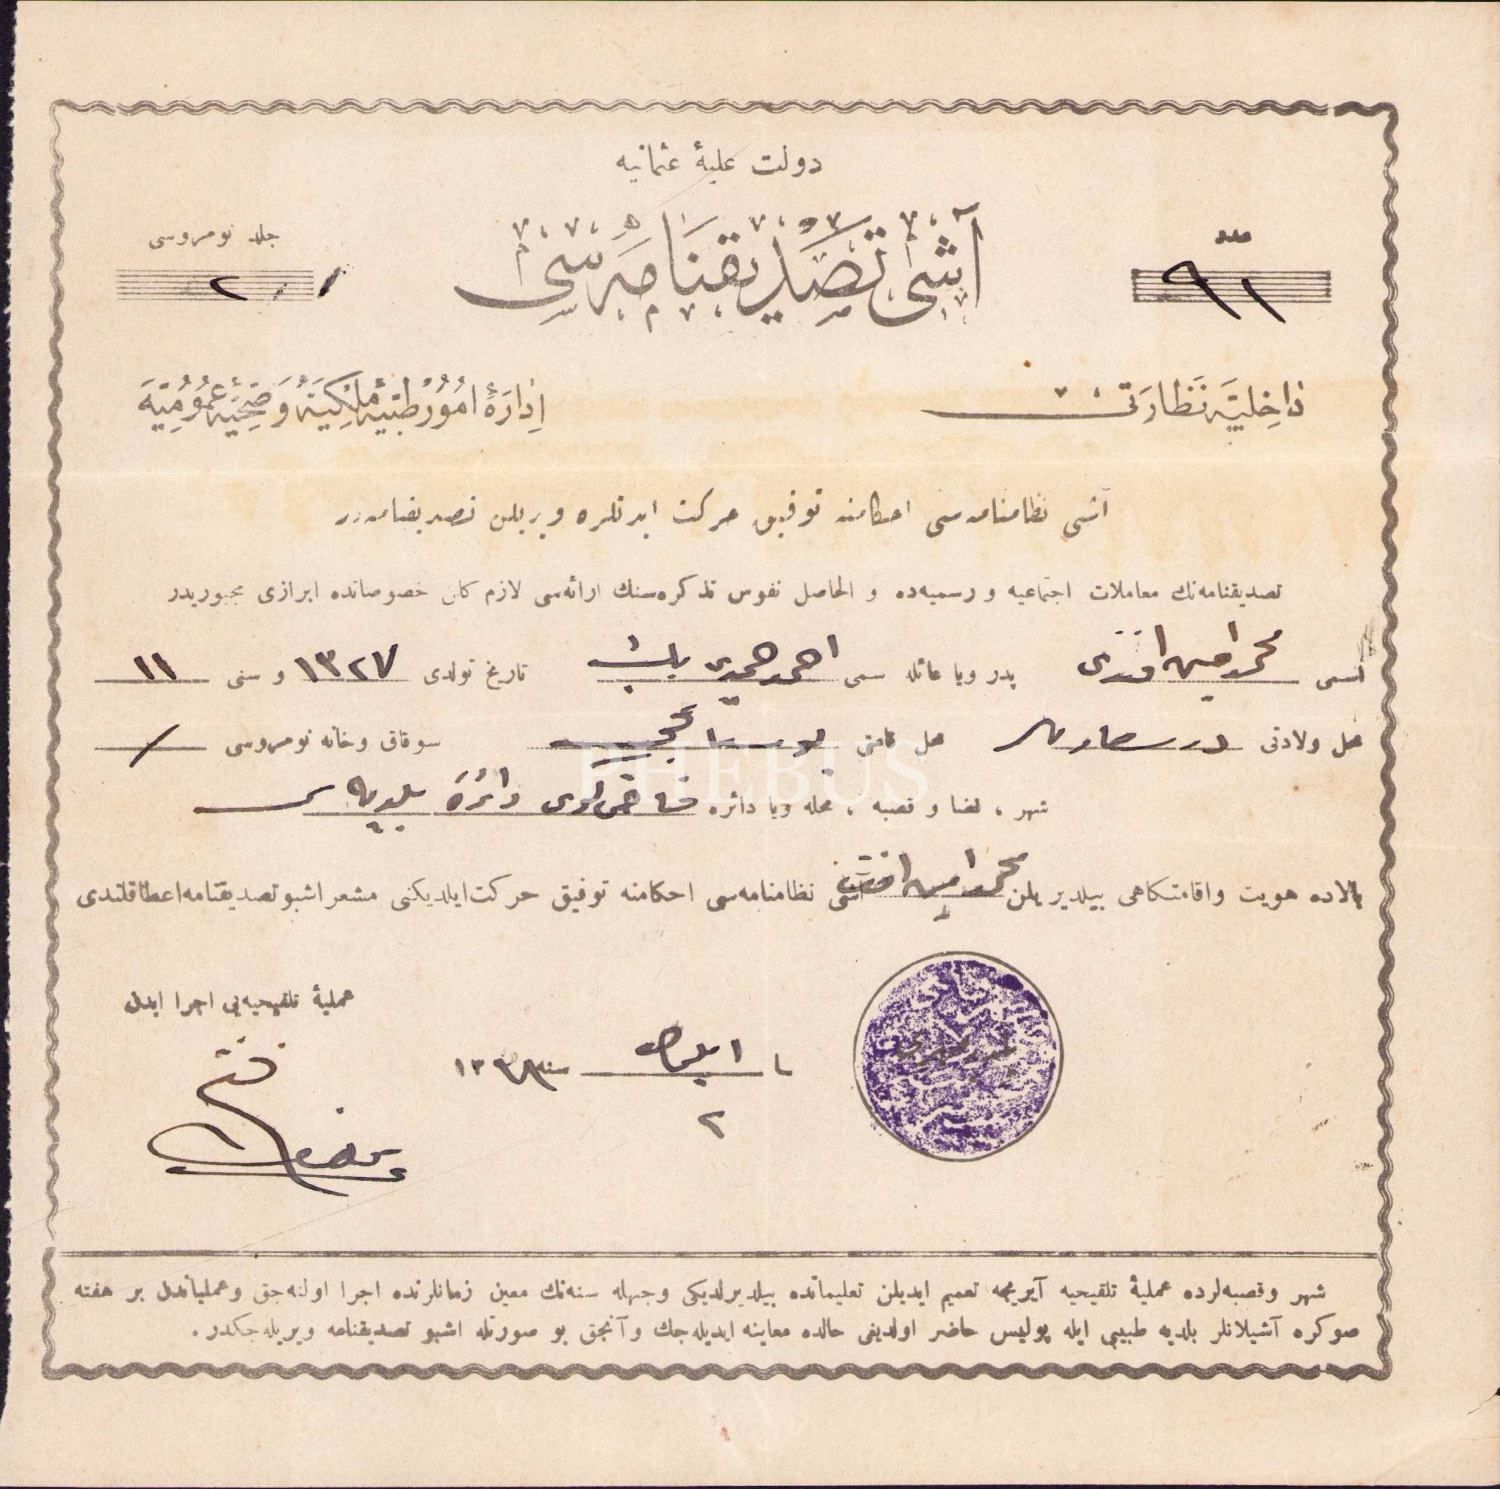 دولت عليهٔ عثمانيه
آشی تصديقنامه‌سی
عدد
٩١
جلد نومروسی
٢
داخليه نظارتی
ادارهٔ امور طبيهٔ ملكيه و صحيهٔ عموميه
آشی نظامنامه‌سی احكامنه توفيق حركت ايدنلره ويريلن تصديقنامه‌در
تصديقنامه‌نك معاملات اجتماعيه و رسميه‌ده و الحاصل نفوس تذكره‌سنك ارائه‌سی لازم كلن خصوصاتده ابرازی مجبوريدر
اسمی محمد امين افندی پدر ويا عائله سمی احمد حمدی بك تاريخ تولدی ١٣٢٧ و سنی ١١
محل ولادتی در سعادت محل اقامتی سوقاق وخانه نومروسی /
شهر ، قضا و قصبه ، محله ويا دائره قاضی‌كوی دائرهٔ بلديه‌سی
بالاده هويت واقامتگاهی بيلديريلن محمد امين افندی آشی نظامنامه‌سی احكامنه توفيق حركت ايلديكنی مشعر اشبو تصديقنامه اعطا قلندی
عمليهٔ تلقيحيه‌يی اجرا ايدن
ايلول سنه ١٣٣٨
٢
شهر وقصبه‌لرده عمليهٔ تلقيحيه آيريجه تعميم ايديلن تعليماتده بيلديرلديكی وجهله سنه‌نك معين زمانلرنده اجرا اولنه‌جق وعملياتدن بر هفته
صوكره آشيلانلر بلديه طبيبی ايله پوليس حاضر اولدينی حالده معاينه ايديله‌جك وآنجق بو صورتله اشبو تصديقنامه ويريله‌جكدر.
PHEBUS